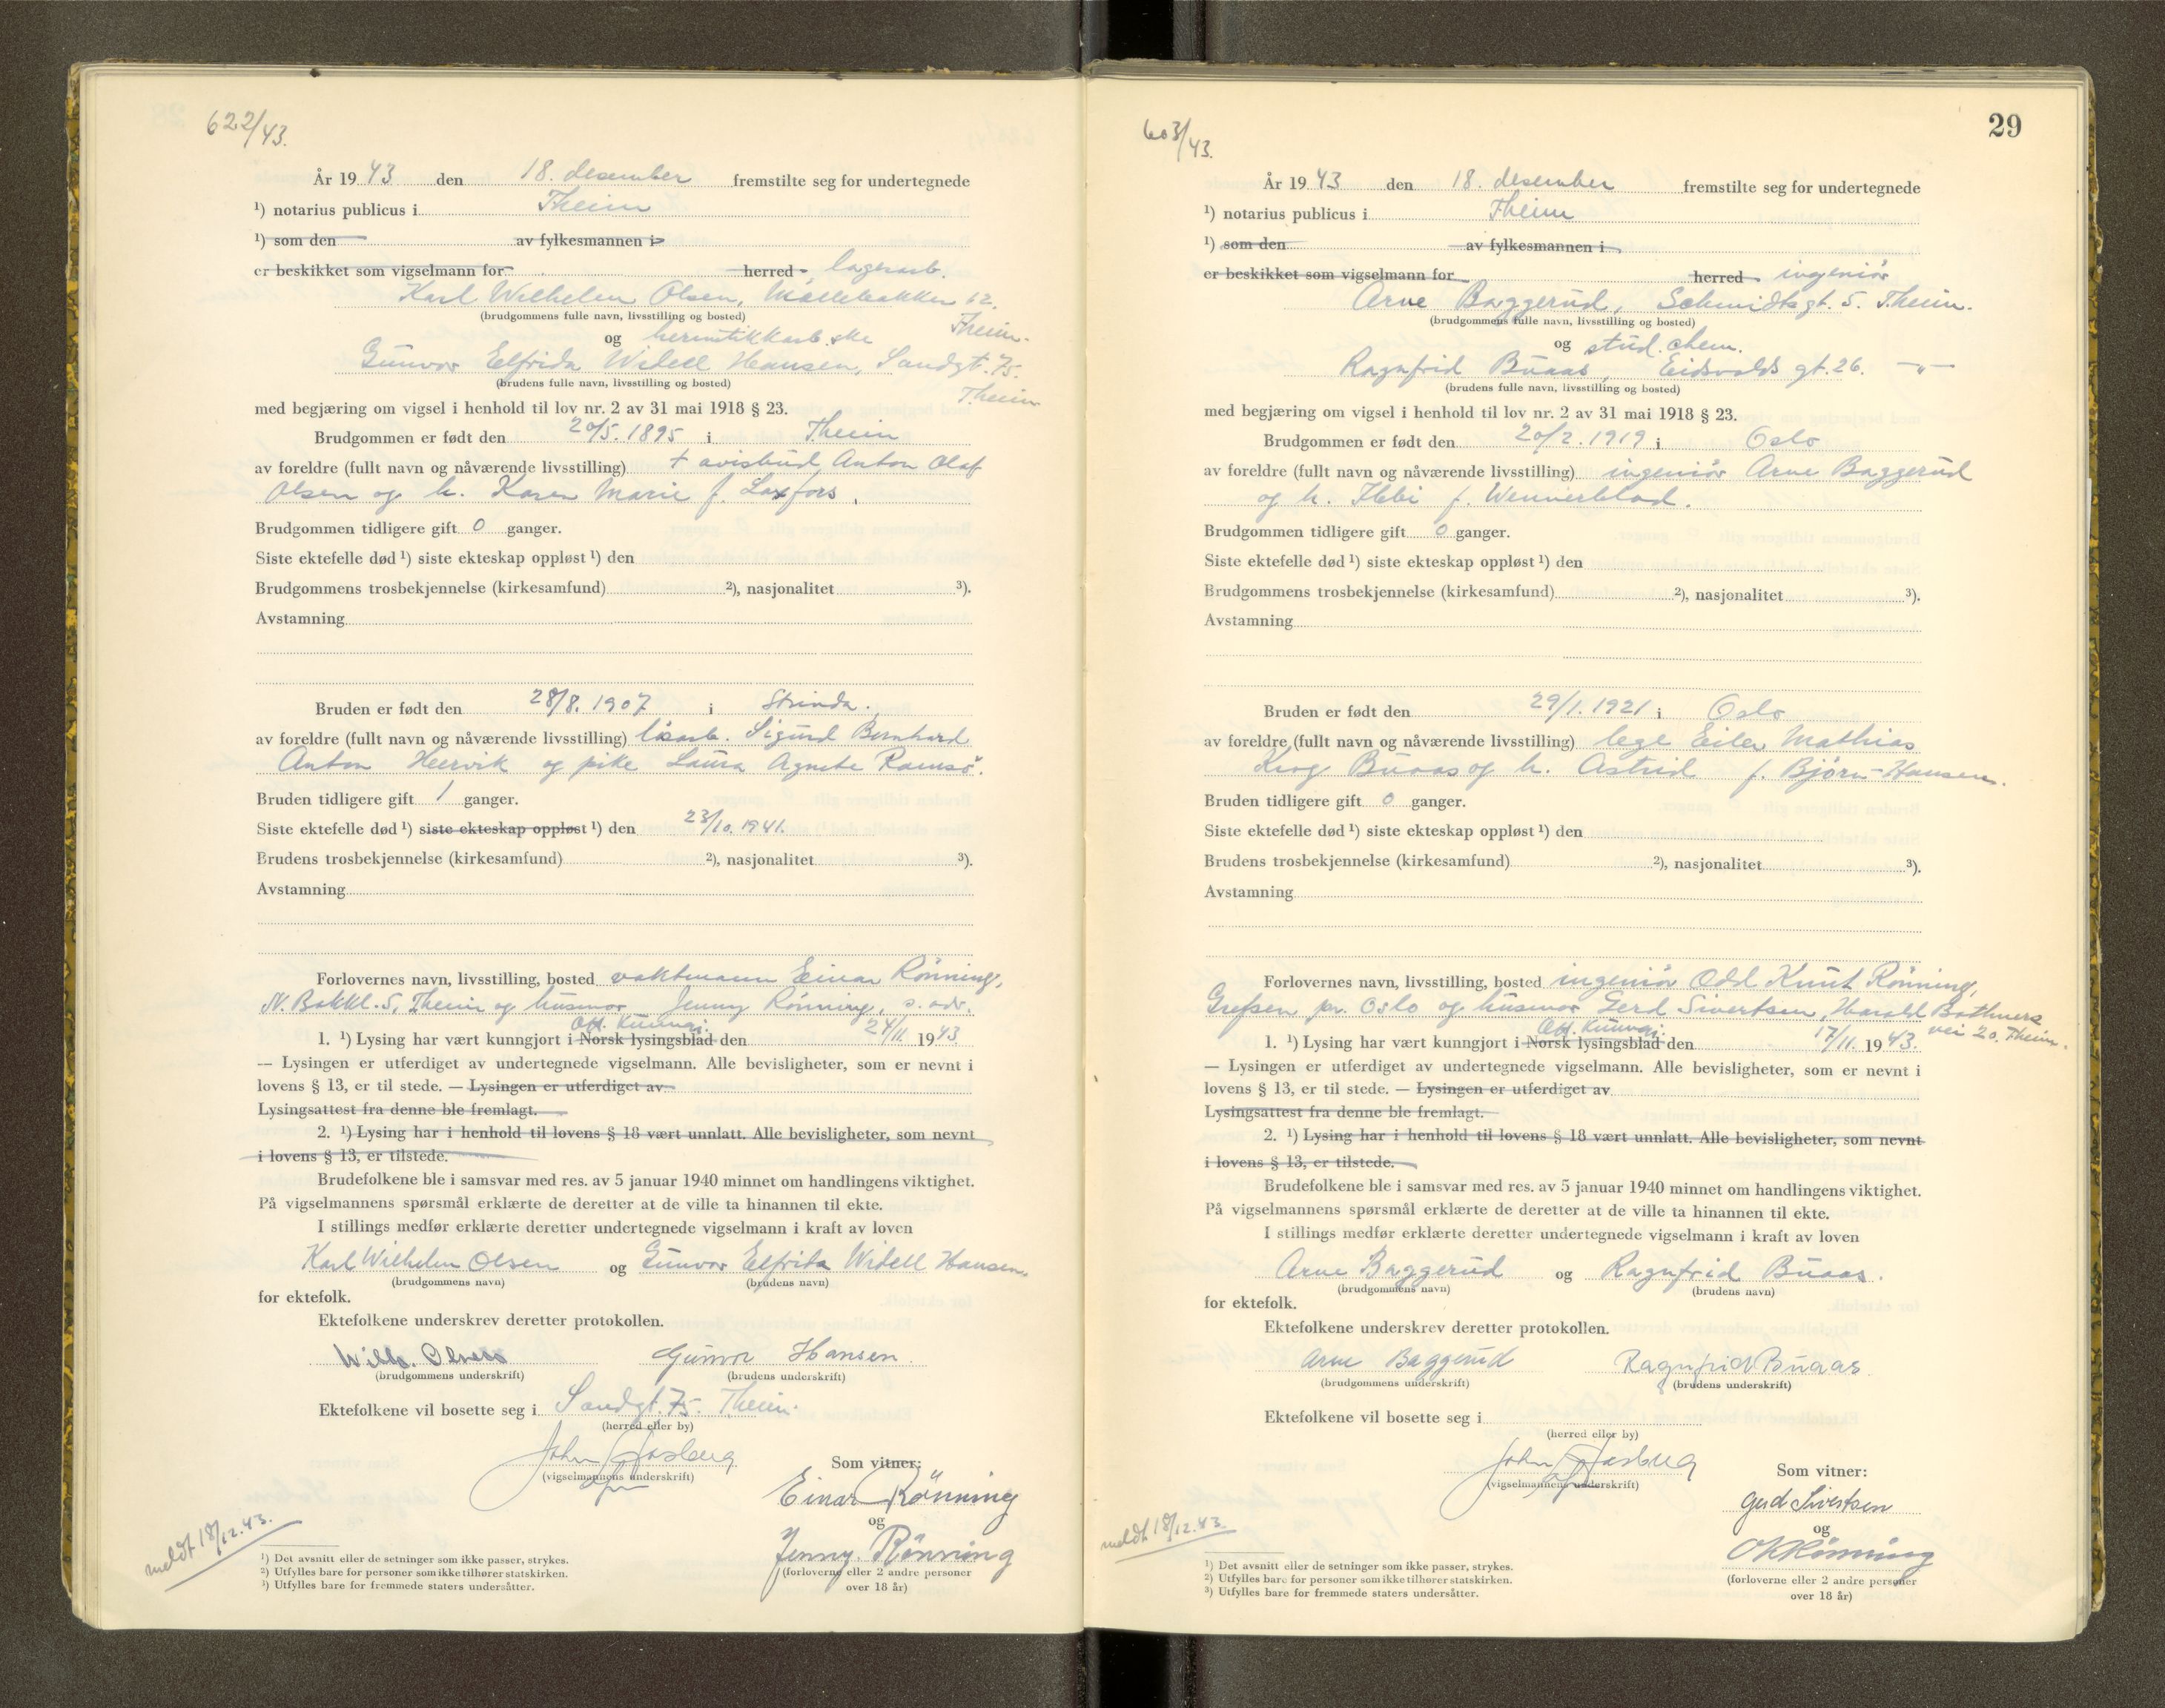 622/43.
År 1943 den 18. desember fremstilte seg for undertegnede
¹) notarius publicus i Theim
¹) som den av fylkesmannen i
er beskikket som vigselmann for herred lagerarb.
Karl Wilhelm Olsen, Møllebakken 62.
(brudgommens fulle navn, livsstilling og bosted) Theim.
og hermetikkarb.ske
Gunvor Elfrida Widell Hansen, Sandgt. 75.
(brudens fulle navn, livsstilling og bosted) Theim
med begjæring om vigsel i henhold til lov nr. 2 av 31 mai 1918 § 23.
Brudgommen er født den 20/5. 1895 i Theim
av foreldre (fullt navn og nåværende livsstilling) + avisbud Anton Olaf
Olsen og h. Karen Marie f. Laxfors.
Brudgommen tidligere gift 0 ganger.
Siste ektefelle død ¹) siste ekteskap oppløst ¹) den
Brudgommens trosbekjennelse (kirkesamfund) ²), nasjonalitet ³).
Avstamning
Bruden er født den 28/8. 1907 i Strinda.
av foreldre (fullt navn og nåværende livsstilling) løsarb. Sigurd Bernhard
Anton Hervik og pike Laura Agnete Ramsö.
Bruden tidligere gift 1 ganger.
Siste ektefelle død ¹) siste ekteskap oppløst ¹) den 23/10. 1941.
Brudens trosbekjennelse (kirkesamfund) ²), nasjonalitet ³).
Avstamning
Forlovernes navn, livsstilling, bosted vaktmann Einar Rönning,
N. Bakkl. 5, Theim og husmor Jenny Rönning, s. adr.
Off. Kunngj.
1. ¹) Lysing har vært kunngjort i Norsk lysingsblad den 24/11. 1943.
— Lysingen er utferdiget av undertegnede vigselmann. Alle bevisligheter, som er nevnt i
lovens § 13, er til stede. — Lysingen er utferdiget av
Lysingsattest fra denne ble fremlagt.
2. ¹) Lysing har i henhold til lovens § 18 vært unnlatt. Alle bevisligheter, som nevnt
i lovens § 13, er tilstede.
Brudefolkene ble i samsvar med res. av 5 januar 1940 minnet om handlingens viktighet.
På vigselmannens spørsmål erklærte de deretter at de ville ta hinannen til ekte.
I stillings medfør erklærte deretter undertegnede vigselmann i kraft av loven
Karl Wilhelm Olsen og Gunvor Elfrida Widell Hansen.
(brudgommens navn) (brudens navn)
for ektefolk.
Ektefolkene underskrev deretter protokollen.
Wilh. Olsen Gunvor Hansen.
(brudgommens underskrift) (brudens underskrift)
Ektefolkene vil bosette seg i Sandgt. 75. Theim.
(herred eller by)
John
(vigselmannens underskrift)
Som vitner:
Einar Rönning
og
Jenny Rönning
(forloverne eller 2 andre personer
over 18 år)
meldt 18/12.43.
¹) Det avsnitt eller de setninger som ikke passer, strykes.
²) Utfylles bare for personer som ikke tilhører statskirken.
³) Utfylles bare for fremmede staters undersåtter.
29
603/43.
År 1943 den 18. desember fremstilte seg for undertegnede
¹) notarius publicus i Theim
¹) som den av fylkesmannen i
er beskikket som vigselmann for herred ingeniør
Arne Baggerud, Schmidtsgt. 5. Theim.
(brudgommens fulle navn, livsstilling og bosted)
og stud. chem.
Ragnfrid Buaas, Eidsvolds gt. 26. —"—
(brudens fulle navn, livsstilling og bosted)
med begjæring om vigsel i henhold til lov nr. 2 av 31 mai 1918 § 23.
Brudgommen er født den 20/2. 1919 i Oslo
av foreldre (fullt navn og nåværende livsstilling) ingeniør Arne Baggerud
og h. Ebbi f. Wennerblad.
Brudgommen tidligere gift 0 ganger.
Siste ektefelle død ¹) siste ekteskap oppløst ¹) den
Brudgommens trosbekjennelse (kirkesamfund) ²), nasjonalitet ³).
Avstamning
Bruden er født den 29/1. 1921 i Oslo
av foreldre (fullt navn og nåværende livsstilling) lege Eiler Mathias
Krog Buaas og h. Astrid f. Bjørn-Hansen.
Bruden tidligere gift 0 ganger.
Siste ektefelle død ¹) siste ekteskap oppløst ¹) den
Brudens trosbekjennelse (kirkesamfund) ²), nasjonalitet ³).
Avstamning
Forlovernes navn, livsstilling, bosted ingeniør Odd Knut Rönning,
Grefsen pr. Oslo og husmor Gerd Sivertsen, Harald Bothners
Off. Kunngj. vei 20. Theim.
1. ¹) Lysing har vært kunngjort i Norsk lysingsblad den 17/11. 1943.
— Lysingen er utferdiget av undertegnede vigselmann. Alle bevisligheter, som er nevnt i
lovens § 13, er til stede. — Lysingen er utferdiget av
Lysingsattest fra denne ble fremlagt.
2. ¹) Lysing har i henhold til lovens § 18 vært unnlatt. Alle bevisligheter, som nevnt
i lovens § 13, er tilstede.
Brudefolkene ble i samsvar med res. av 5 januar 1940 minnet om handlingens viktighet.
På vigselmannens spørsmål erklærte de deretter at de ville ta hinannen til ekte.
I stillings medfør erklærte deretter undertegnede vigselmann i kraft av loven
Arne Baggerud og Ragnfrid Buaas.
(brudgommens navn) (brudens navn)
for ektefolk.
Ektefolkene underskrev deretter protokollen.
Arne Baggerud Ragnfrid Buaas
(brudgommens underskrift) (brudens underskrift)
Ektefolkene vil bosette seg i
(herred eller by)
John
(vigselmannens underskrift)
Som vitner:
Gerd Sivertsen
og
OKRönning
(forloverne eller 2 andre personer
over 18 år)
meldt 18/12.43.
¹) Det avsnitt eller de setninger som ikke passer, strykes.
²) Utfylles bare for personer som ikke tilhører statskirken.
³) Utfylles bare for fremmede staters undersåtter.